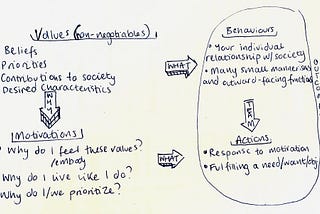 Values (non-negotiables)
Beliefs
Priorities
Contributions to society
Desired characteristics
WHY
Motivations
Why do I feel these values?
/embody
Why do I live like I do?
Why do I/we prioritize?
WHAT
WHAT
Behaviours
• Your individual
relationship w/society
• Many small mannerisms
and outward-facing
Actions
• Response to motivation
• Fulfilling a need/want/obj